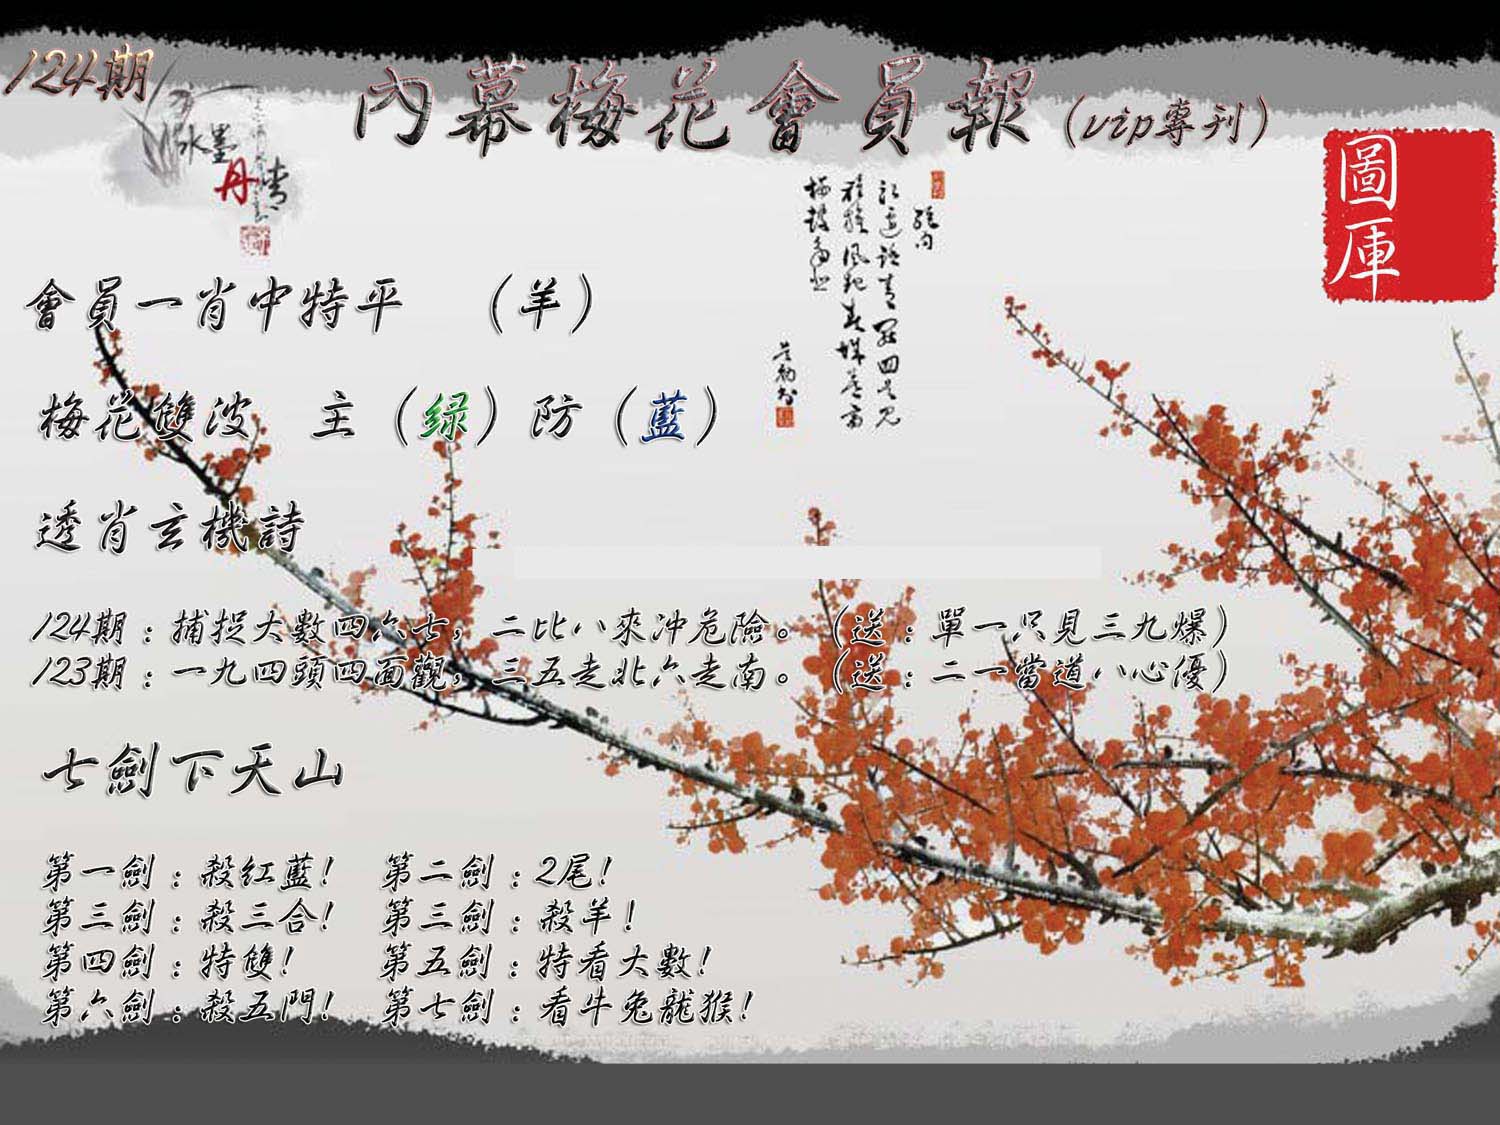 124期
內幕梅花會員報（vip專刊）
水墨
丹青
圖庫
會員一肖中特平　（羊）
梅花雙波　主（绿）防（藍）
透肖玄機詩
124期：捕捉大數四六七，二比八來沖危險。（送：單一只見三九爆）
123期：一九四頭四面觀，三五走北六走南。（送：二一當道八心優）
七劍下天山
第一劍：殺红藍！　第二劍：2尾！
第三劍：殺三合！　第三劍：殺羊！
第四劍：特雙！　第五劍：特看大數！
第六劍：殺五門！　第七劍：看牛兔龍猴！